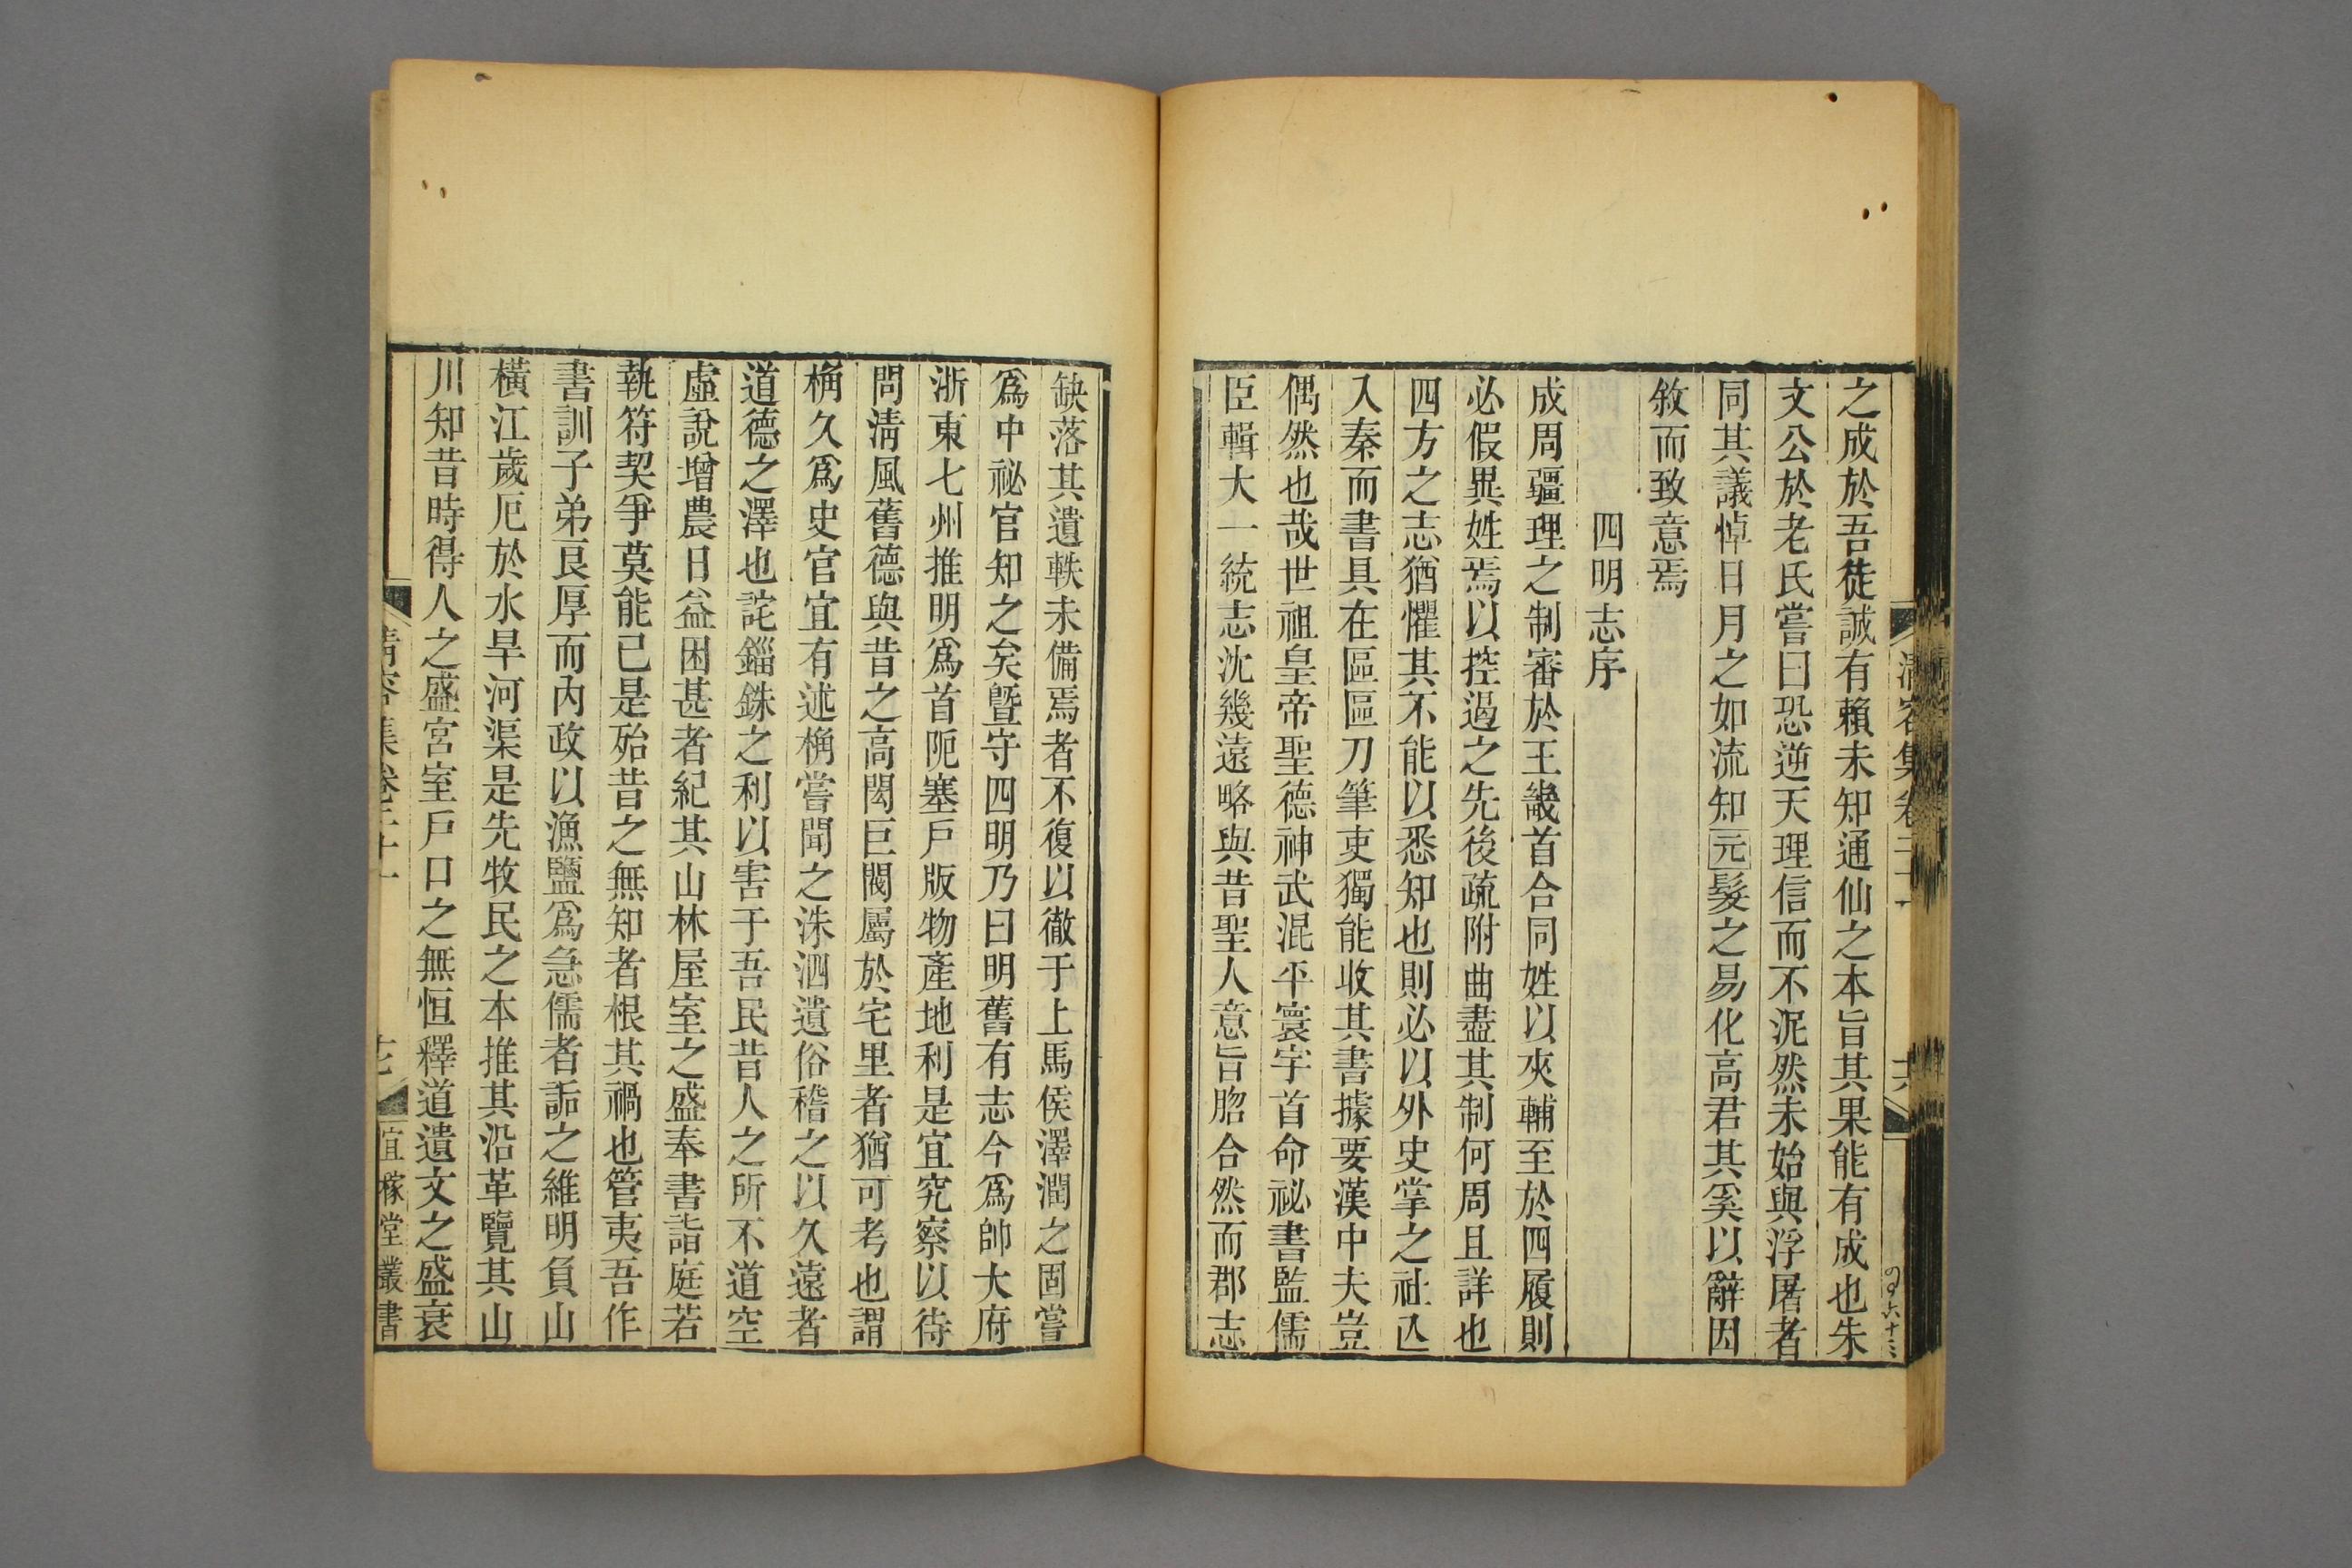 之成於吾徒誠有賴未知通仙之本旨其果能有成也朱
文公於老氏嘗曰恐逆天理信而不泥然未始與浮屠者
同其議悼日月之如流知元髮之易化高君其奚以辭因
敘而致意焉
四明志序
成周疆理之制審於王畿首合同姓以夾輔至於四履則
必假異姓焉以控遏之先後疏附曲盡其制何周且詳也
四方之志猶懼其不能以悉知也則必以外史掌之社亾
入秦而書具在區區刀筆吏獨能收其書據要漢中夫豈
偶然也哉世祖皇帝聖德神武混平寰宇首命祕書監儒
臣輯大一統志沈幾遠略與昔聖人意旨脗合然而郡志
缺落其遺軼未備焉者不復以徹于上馬侯澤潤之固嘗
爲中祕官知之矣曁守四明乃曰明舊有志今爲帥大府
浙東七州推明爲首阨塞戸版物產地利是宜究察以待
問淸風舊德與昔之高閎巨閥屬於宅里者猶可考也謂
桷久爲史官宜有述桷嘗聞之洙泗遺俗稽之以久遠者
道德之澤也詫錙銖之利以害于吾民昔人之所不道空
虛說增農日益困甚者紀其山林屋室之盛奉書詣庭若
執符契爭莫能已是殆昔之無知者根其禍也管夷吾作
書訓子弟艮厚而內政以漁鹽爲急儒者詬之維明負山
橫江歲厄於水旱河渠是先牧民之本推其沿革覽其山
川知昔時得人之盛宮室戸口之無恒釋道遺文之盛衰
清容集卷二十一
宜稼堂叢書